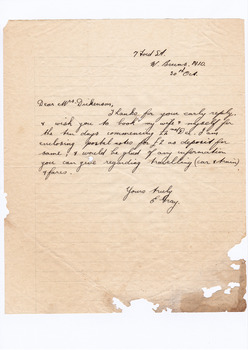 7 Ford St.
W. Bruns. N10.
20th Oct.
Dear Mrs Dickenson,
Thanks for your early reply.
& wish you to book my wife & myself for
the ten days commencing 12th Dec. I am
enclosing postal notes for £2 as deposit for
same, & would be glad of any information
you can give regarding travelling (car & train)
& fares.
Yours truly
E Gray.